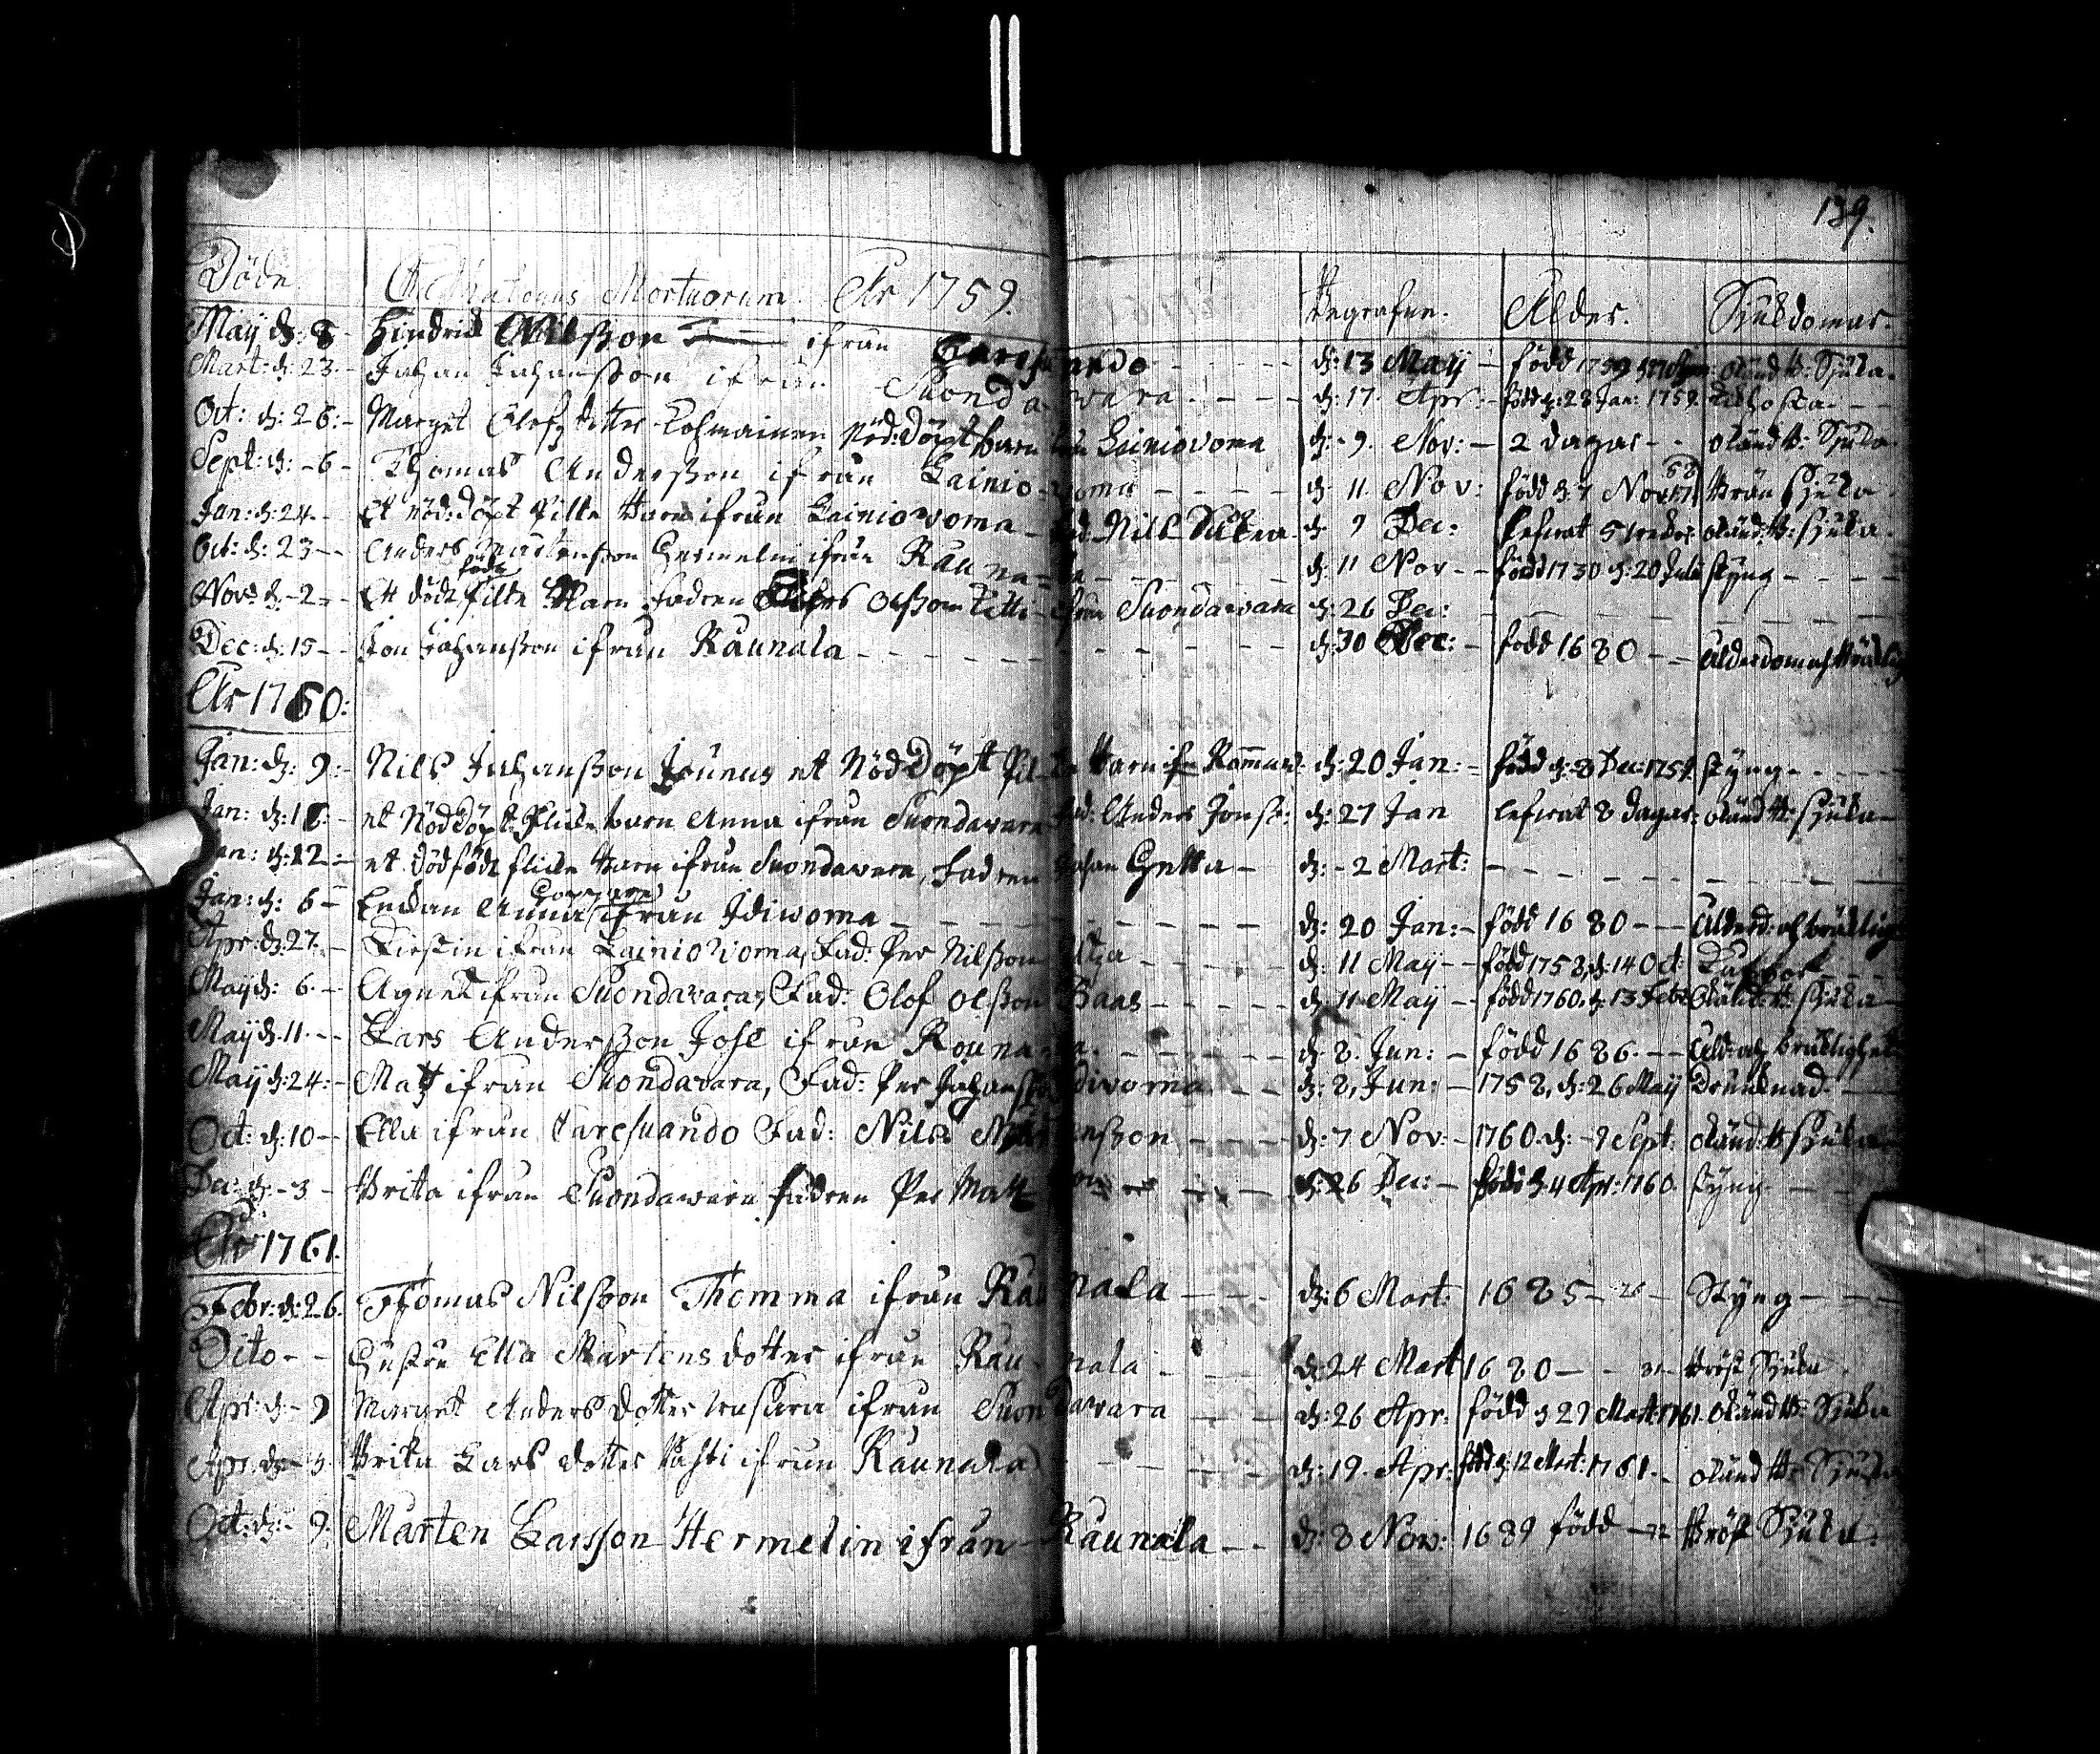 139.
Döde Cathalogus Mortuorum. År 1759. Begrafne. Ålder. Siukdomar.
Maÿ d: 8 - Hindrich Nilsson ifrån Caresuando - - - d: 13 Maÿ - född 1759 okänd b: Siuka.
Mart: d: 23 - Johan Johansson ifrån Suondavara - - - d: 17 Apr: - född d: 28 Jan: 1759 Kikhosta - -
Oct: d: 26: - Marget Olofz dotter Kolmainen Nöd: döpt barn ifrån Lainiovoma d: - 9. Nov: - 2 dagar - - okänd b: Siuka
Sept: d: - 6 - Thomas Andersson ifrån Lainiovoma - - - d: 11 Nov: född d: 7 Nov: 58 Brän Siuka
Jan: d: 24 - - Et nöd: döpt Pilte Barn ifrån Lainiovoma - Fad: Nils d: 9 Dec: Lefwat 5 weckor okänd: b: siuka.
Oct: d: 23 - - Anders Mårtensson Hermelin ifrån Raunala - - - d: 11 Nov - - född 1730 d: 20 Julii styng - - -
Nov: d: - 2 - - Ett död född Pilte Barn fadren Olsson Kitti - ifrån Suondavara d: 26 Dec: - - -
Dec: d: 15 - - Jon Johansson ifrån Raunala - - - d: 30 Dec: - född 1680 - - Ålderdoms bräcklig
År 1760:
Jan: d: 9: - Nils Johansson Jounus et Nöd Döpt Pilte Barn ifr Rommaw. d: 20 Jan: - född d: 8 Dec: 1759 styng - - -
Jan: d: 18: - et Nöddöpt flicke barn Anna ifrån Suondavara Fad: Anders Jonss: d: 27 Jan lefwat 8 dagar: okänd b: siuka -
Jan: d: 12 - - et dödfödt flicke barn ifrån Suondavara, Fadren Johan Gutta - d: - 2 Mart: - - -
Jan: d: 6 - Enkan Anna ifrån Idiwoma - - - d: 20 Jan: - född 1680 - - - Ålderd: bräcklig
Apr: d: 27. - Kirstin ifrån Lainiovoma, Fad: Per Nilsson - - - d: 11 Maÿ - - född 1758, d: 14 Oct: Kåppor - - -
Maÿ d: 6. - Agnet ifrån Suondavara, Fad: Olof Olsson Baas - - - d: 11 Maÿ - - född 1760, d: 13 Febr okänd b: siuka -
Maÿ d. 11. - - Lars Andersson Johl ifrån Rounala - - - d: 8. Jun: - född 1686. - - Åld: bräcklighet
Maÿ d: 24: - Matz ifrån Suondavara, Fad: Per Johansson Idivoma - - d: 8, Jun: - 1758, d: 26 Maÿ Drunknad. -
Oct: d: 10 - - Ella ifrån Caresuando Fad: Nils - - - d: 7 Nov: - 1760. d: - 9 Sept: okänd: b siuka -
Dec: d: - 3 - Brita ifrån Suondawara fadren Per Mattsson - - - d: 26 Dec: - född d. 4 Apr: 1760. styng. - -
År 1761.
Febr: d: 26. Thomas Nilsson Thomma ifrån Raunala - - - d: 6 Mart: 1685 - 76 - Styng - - -
Dito - - Hustru Ella Mårtens dotter ifrån Raunala - - - d: 24 Mart 1680 - - 81 - Bröst Siuka
Apr: d: - 9 Marget Anders dotter ifrån Suondavara - - - d: 26 Apr: född d 29 Mart: 1761. okänd b: Siuka
Apr: d: - 3. Brita Lars dotter ifrån Raunala - - - d: 19. Apr: född d: 12 Mart: 1761. - okänd b: Siuka
Oct: d: - 9. Mårten Larsson Hermelin ifrån Raunala - - d: 8 Nov: 1689 född - 72 Bröst Siuka.